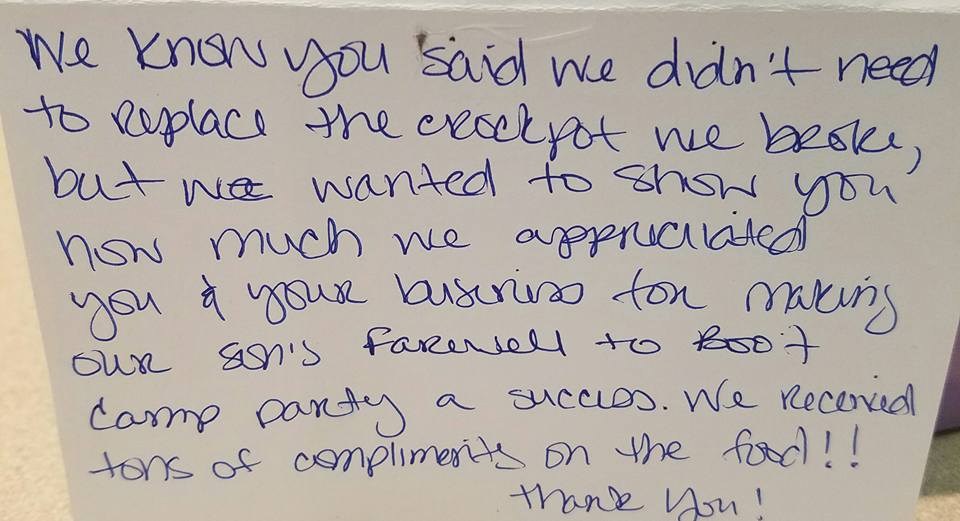 We know you said we didn't need
to replace the crockpot we broke,
but we wanted to show you
how much we appreciated
you & your business for making
our son's farewell to Boot
Camp party a success. We received
tons of compliments on the food!!
Thank you!